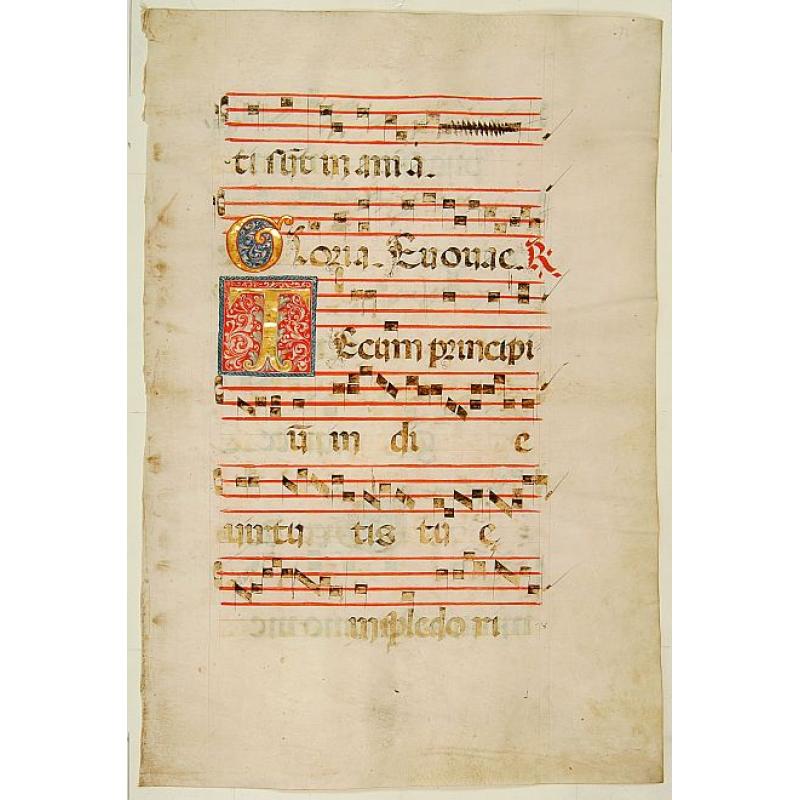 ti sūt in ania.
Gloria. Euouae. R.
Tecum principi
ū in di e
uirtu tis tu ę
insplēdo ri